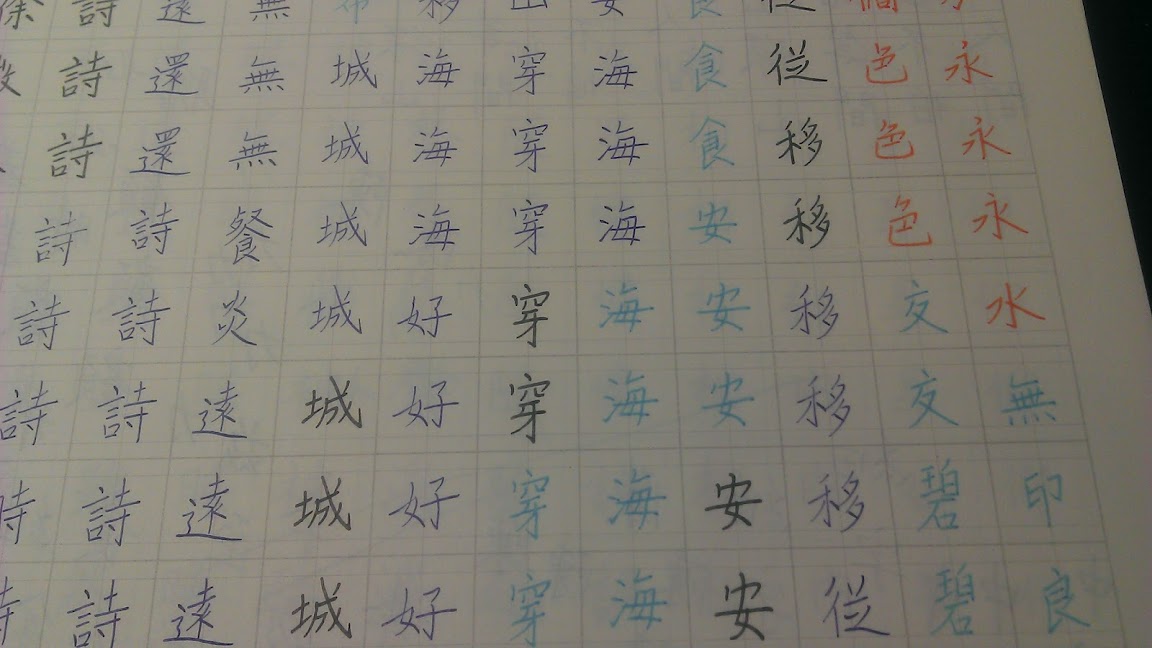 永永永水無印良
色色色友友碧碧
従移移移移移従
食食食安安安安安
安海海海海海海海
山穿穿穿穿穿穿穿
移海海海好好好好
布城城城城城城城
無無無餐炎遠遠遠
還還還詩詩詩詩詩
詩詩詩詩詩詩